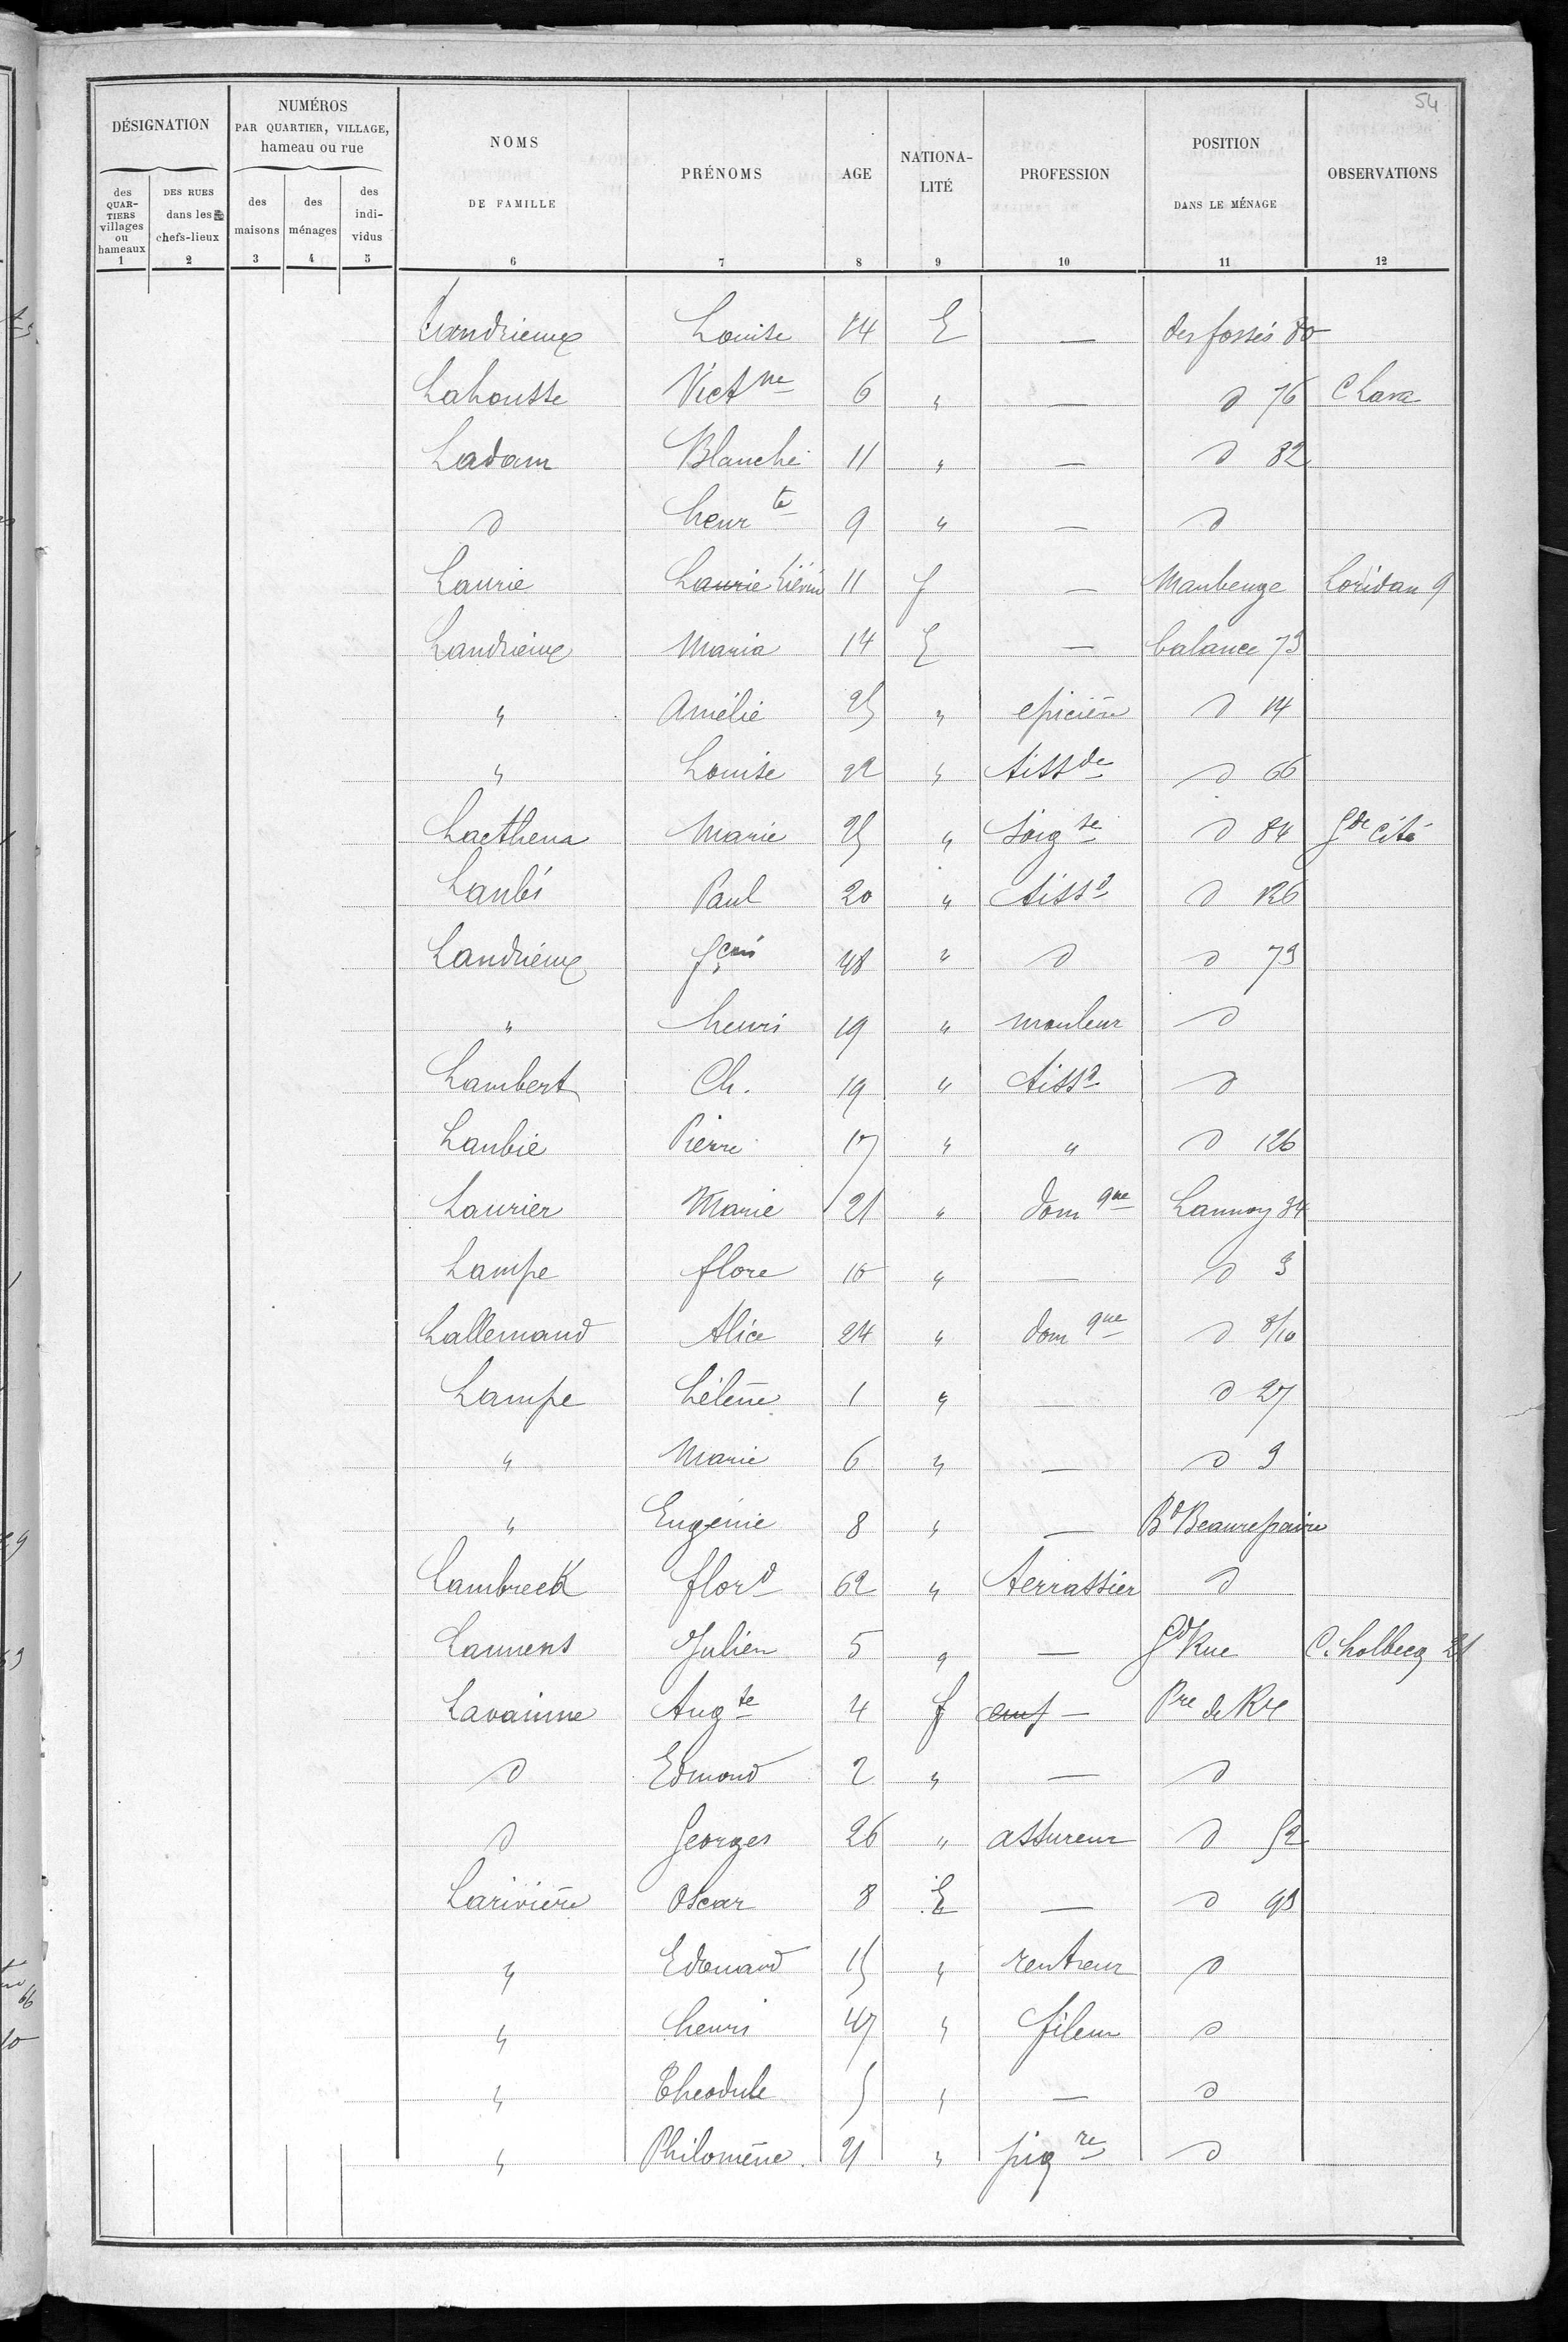 54
DÉSIGNATION
NUMÉROS
PAR QUARTIER, VILLAGE,
hameau ou rue
NOMS
DE FAMILLE
PRÉNOMS
AGE
NATIONA-
LITÉ
PROFESSION
POSITION
DANS LE MÉNAGE
OBSERVATIONS
des QUAR-TIERS villages ou hameaux
DES RUES dans les chefs-lieux
des maisons
des ménages
des indi-vidus
1 2 3 4 5 6 7 8 9 10 11 12
Landrieux Louise 14 E — des fossés 80
Lahousse Vict ne 6 " — d 76 C Lava
Ladam Blanche 11 " — d 82
d henr te 9 " — d
Laurie Laurie Liévin 11 f — Maubeuge Loridan 9
Landrieux Maria 14 E — balance 73
" Amélie 25 " epicière d 14
" Louise 22 " tiss de d 66
Laethena Marie 25 " soig se d 84 Gde Cité
Laubé Paul 20 " tiss d d 126
Landrieux fçois 48 " d d 73
" henri 19 " mouleur d
Lambert Ch. 19 " tiss d d
Laubie Pierre 17 " " d 126
Laurier Marie 21 " dom que Lannoy 84
Lampe flore 10 " — d 3
Lallemand Alice 24 " dom que d 8/10
Lampe hélène 1 " — d 27
" Marie 6 " — d 3
" Eugénie 8 " — Bd Beaurepaire
Lambreck flor d 62 " terrassier d
Laurens Julien 5 " — Gd Rue C. holbecq 21
Lavainne Aug te 4 f enf — Pre de Rx
d Edmond 2 " — d
d Georges 26 " assureur d 52
Larivière Oscar 8 E — d 93
" Edouard 15 " rentreur d
" henri 47 " fileur d
" Théodule 5 " — d
" Philomène 21 " piq re d